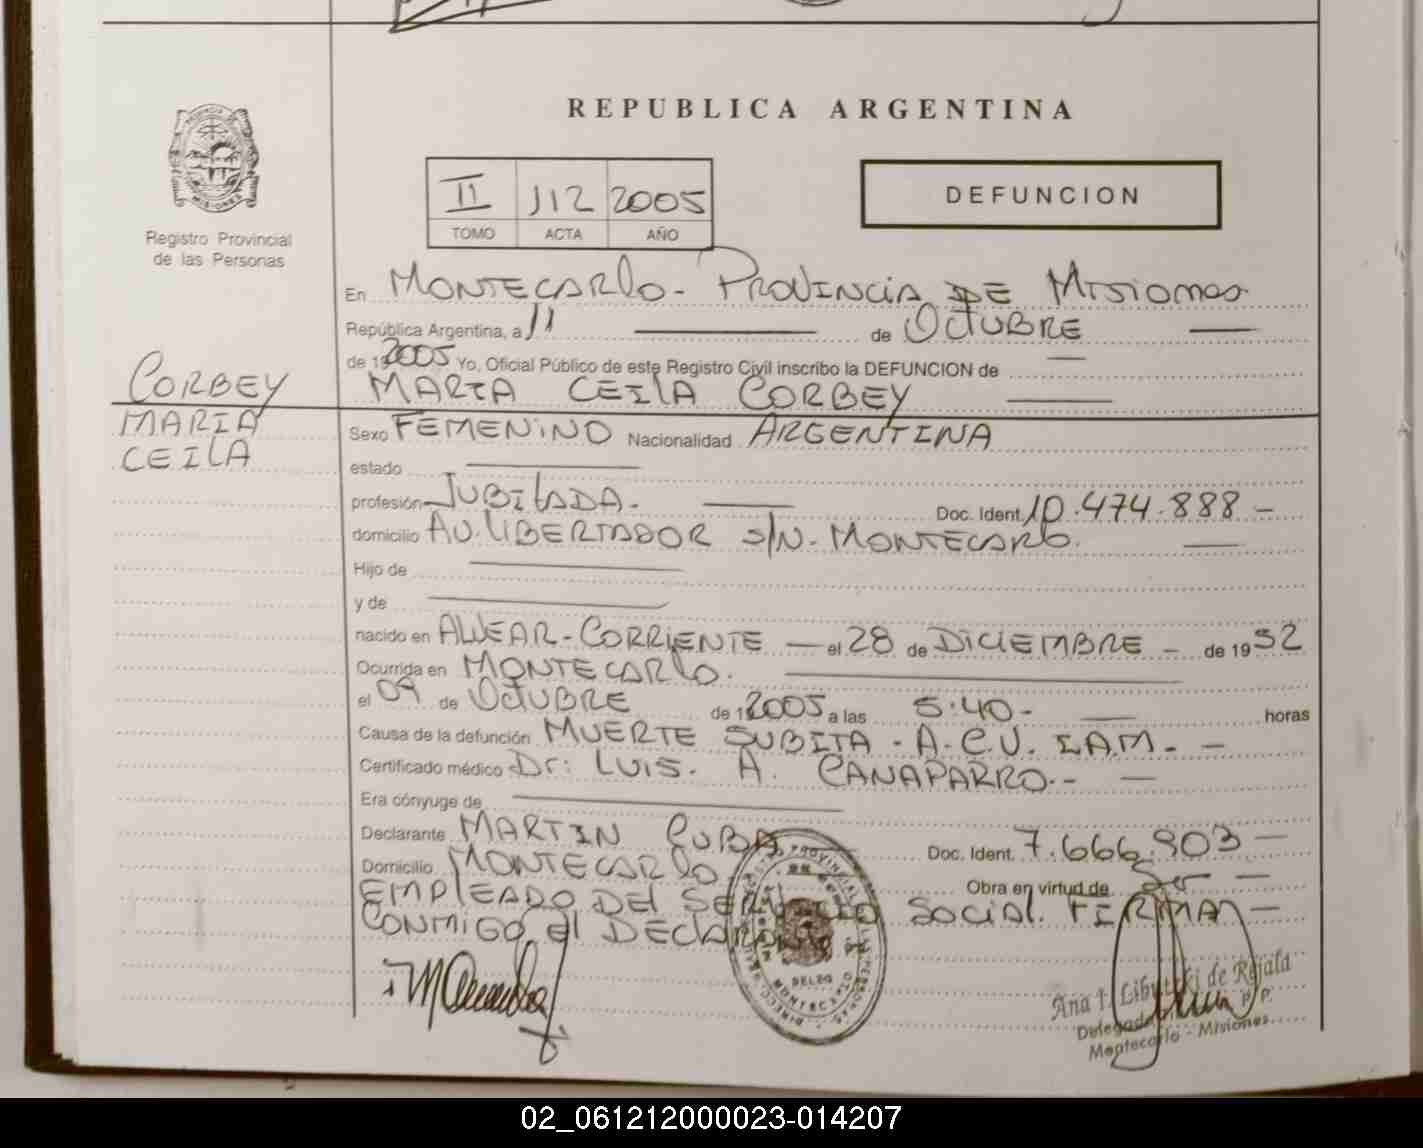 REPUBLICA ARGENTINA
II 112 2005
TOMO ACTA AÑO
DEFUNCION
Registro Provincial
de las Personas
En MONTECARlO - PROVINCIA DE MISIONES
República Argentina, a 11 de OCTUBRE
de 19 2005 Yo, Oficial Público de este Registro Civil inscribo la DEFUNCION de
MARIA CEIlA CORBEY
CORBEY
MARIA
CEILA
Sexo FEMENINO Nacionalidad ARGENTINA
estado
profesión JUBILADA. Doc. Ident. 10.474.888 -
domicilio AV. LIBERTADOR S/N. MONTECARlO.
Hijo de
y de
nacido en ALVEAR - CORRIENTE - el 28 de DICIEMBRE - de 19 52
Ocurrida en MONTECARlO.
el 09 de OCTUBRE de 1 2005 a las 5.40 - horas
Causa de la defunción MUERTE SUBITA - A.C.V. I.A.M. -
Certificado médico Dr: LUIS. A. CANAPARRO.-
Era cónyuge de
Declarante MARTIN CUBA Doc. Ident. 7.666.903 -
Domicilio MONTECARlO. Obra en virtud de Ser -
EMPLEADO DEl SERVICIO SOCIAl. FIRMA -
CONMIGO El DEClARANTE
DELEG
MONTECARLO
Ana T. de Rejala
Delegada
Montecarlo - Misiones
02_061212000023-014207